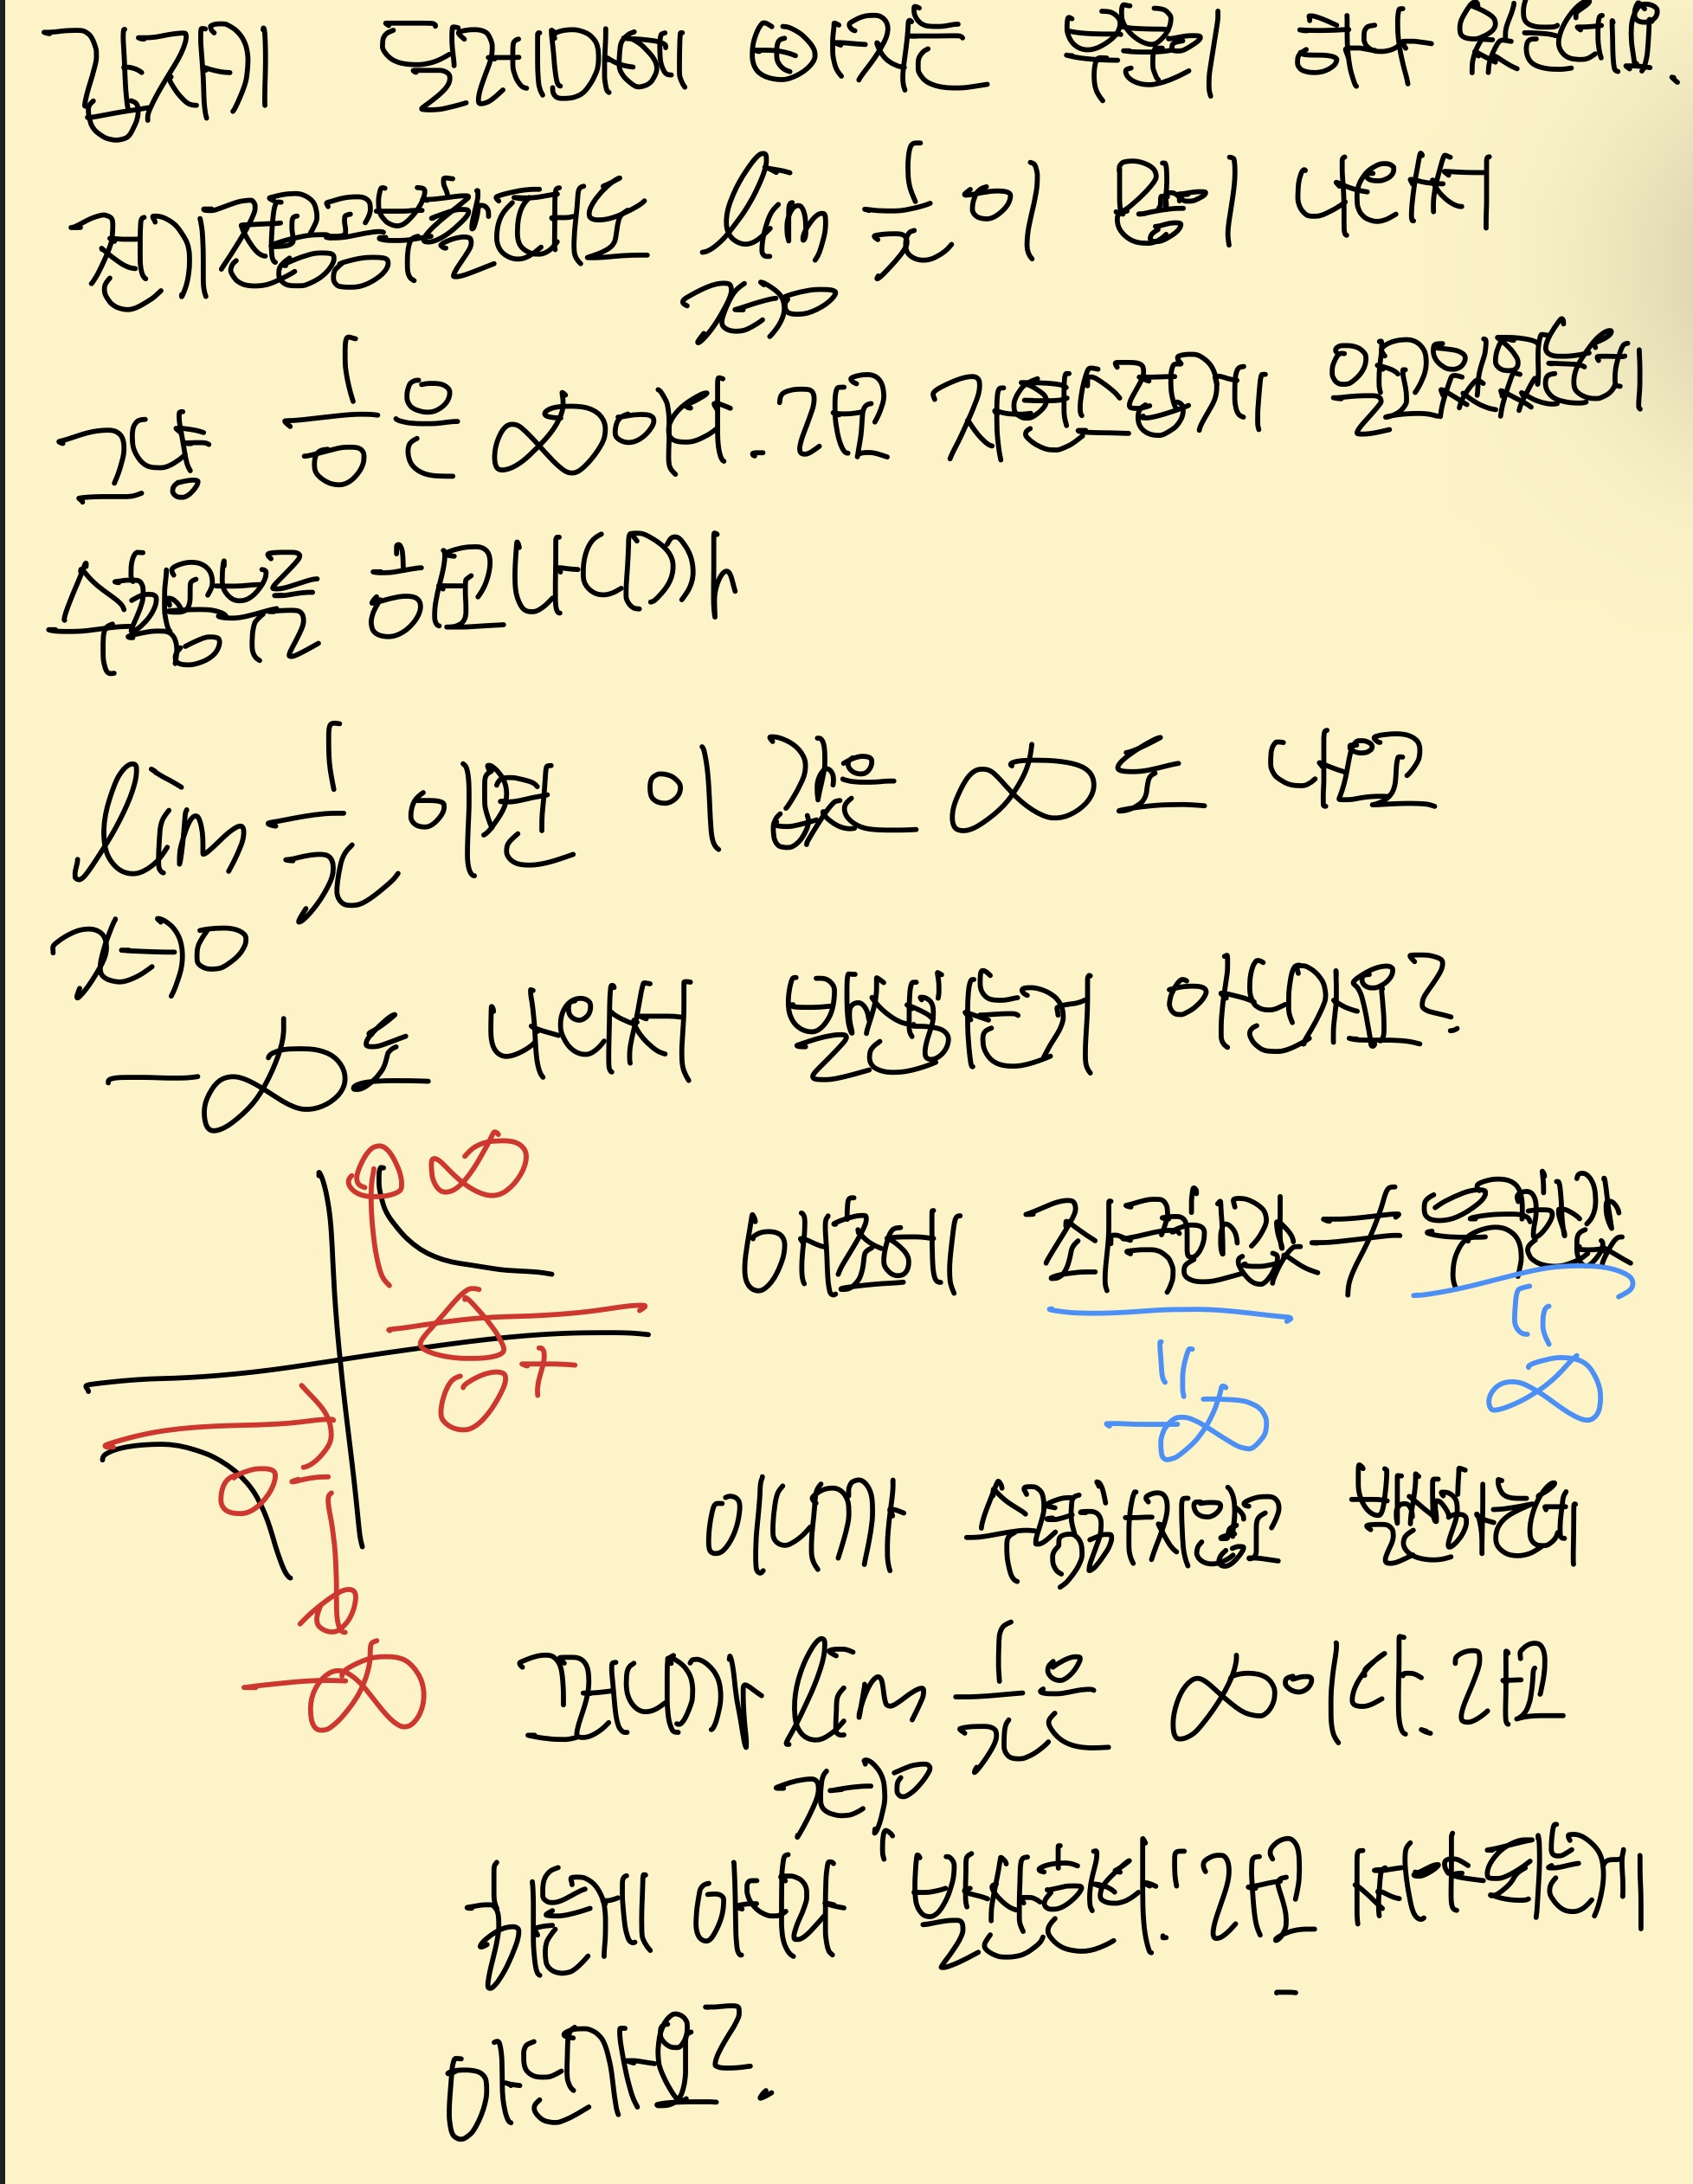 갑자기 든 생각에 생각나는 부분이 하나 있는데요.
전기전공공부할때도 lim 1/x 이 많이 나와서
x→0
그냥 1/0 은 ∞이다. 라고 자연스럽게 알았었는데
수학공부를 하고나니까
lim 1/x 이면 이 값은 ∞도 나오고
x→0
-∞도 나와서 발산하는거 아닌가요?
∞
애초에 좌극한값 ≠ 우극한값
0+
-∞ ∞
0-
이니까 수렴하지않고 발산하는데
-∞
그러니까 lim 1/x 은 ∞이다. 라고
x→0
하는게 아니라 "발산한다." 라고 써야되는게
아닌가요?